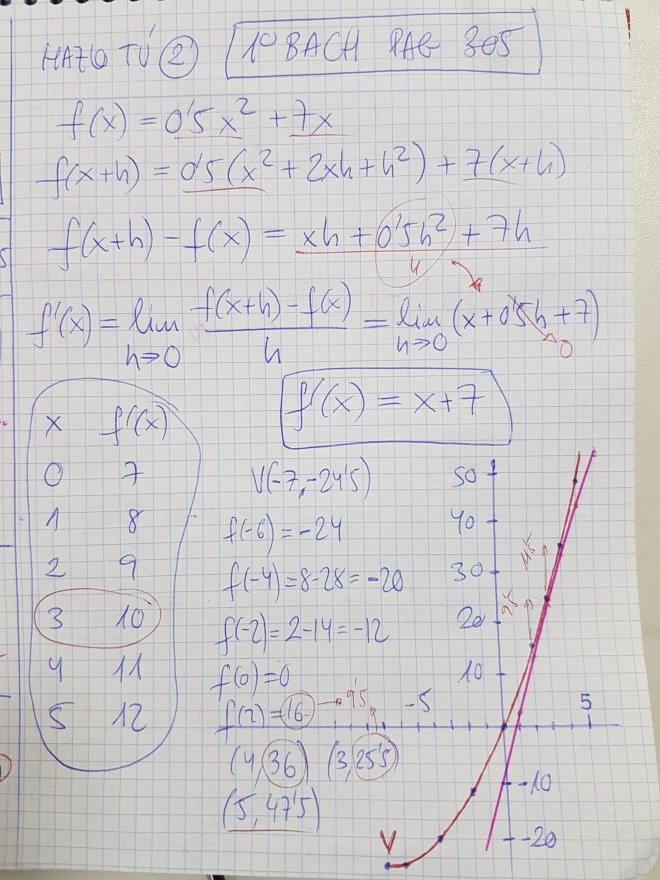 HAZLO TÚ ② 1º BACH PAG 305
f(x) = 0'5x² + 7x
f(x+h) = 0'5(x² + 2xh + h²) + 7(x+h)
f(x+h) - f(x) = xh + 0'5h² + 7h
h
f'(x) = lim h→0 (f(x+h) - f(x))/h = lim h→0 (x + 0'5h + 7)
0
f'(x) = x+7
x f'(x)
0 7
1 8
2 9
3 10
4 11
5 12
V(-7, -24'5)
f(-6) = -24
f(-4) = 8-28 = -20
f(-2) = 2-14 = -12
f(0) = 0
f(2) = 16 → 9'5
(4, 36) (3, 25'5)
(5, 47'5)
50
40
30
20
10
-5 5
-10
-20
9'5
V